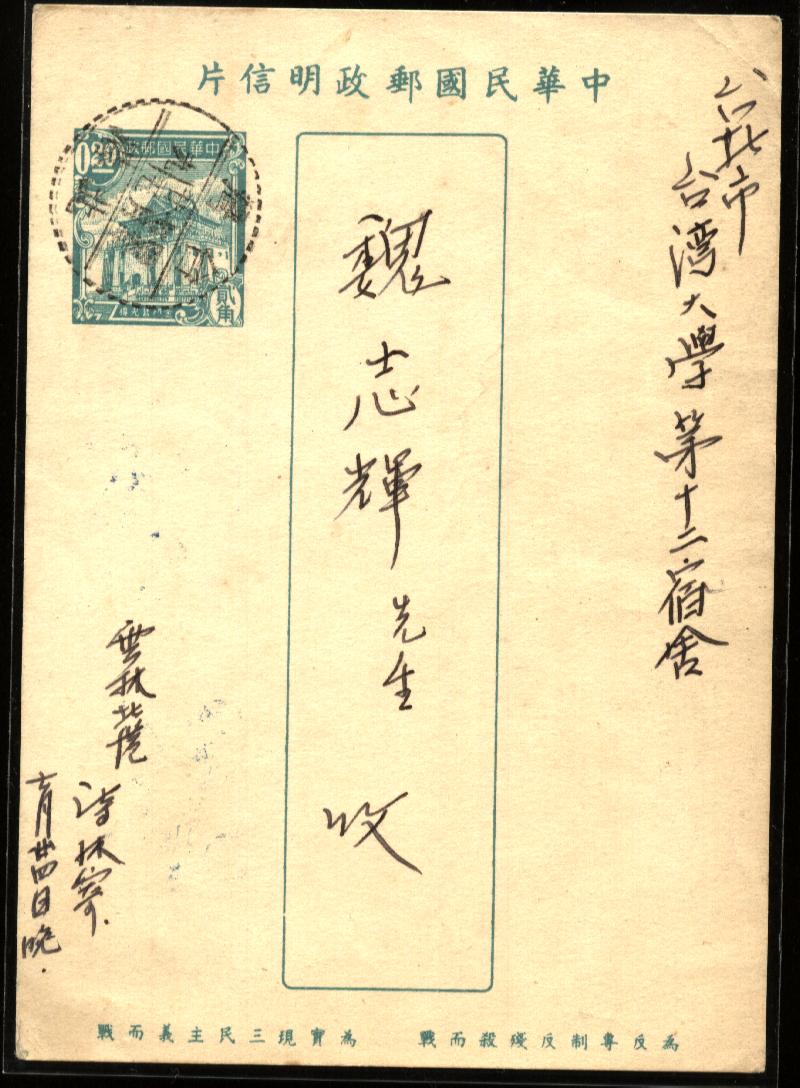 中華民國郵政明信片
中華民國郵政
0.20
貳角
台北市
台湾大學第十二宿舍
魏志輝先生 收
雲林北港
詩林寄.
十月廿四日晚.
為反專制反殘殺而戰
為實現三民主義而戰